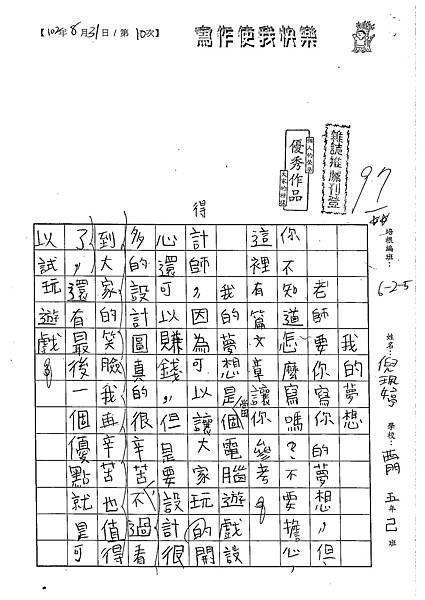 【102年8月31日/第10次】
寫作使我快樂
雜誌推薦刊登
優秀作品
97
培根編班：6-2-5
學校：西門 五年己班
我的夢想
老師要你寫你的夢想，但
你不知道怎麼寫嗎？不要擔心
這裡有篇文章讓你參考。
我的夢想是當電腦遊戲設
計師，因為可以讓大家玩的開
得
心還可以賺錢，但是要設計很
多的設計圖真的很辛苦不過看
到大家的笑臉我再辛苦也值得
了，還有最後一個優點就是可
以試玩遊戲。